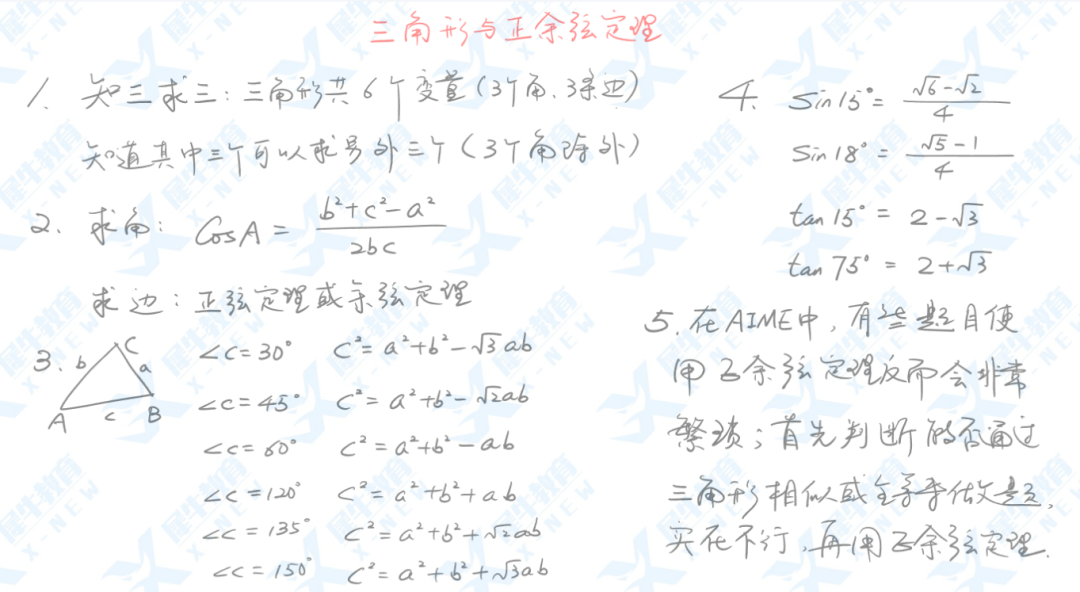 三角形与正余弦定理
1. 知三求三:三角形共6个变量(3个角、3条边)
知道其中三个可以求另外三个(3个角除外)
2. 求角: CosA = \frac{b²+c²-a²}{2bc}
求边:正弦定理或余弦定理
3. A B C a b c
∠C=30° C²=a²+b²-√3ab
∠C=45° C²=a²+b²-√2ab
∠C=60° C²=a²+b²-ab
∠C=120° C²=a²+b²+ab
∠C=135° C²=a²+b²+√2ab
∠C=150° C²=a²+b²+√3ab
4. Sin15°= \frac{√6-√2}{4}
Sin18°= \frac{√5-1}{4}
tan15°= 2-√3
tan75°= 2+√3
5. 在AIME中,有些题目使
用正余弦定理反而会非常
繁琐;首先判断能否通过
三角形相似或全等来做题,
实在不行,再用正余弦定理.
犀牛教育
X-NEW